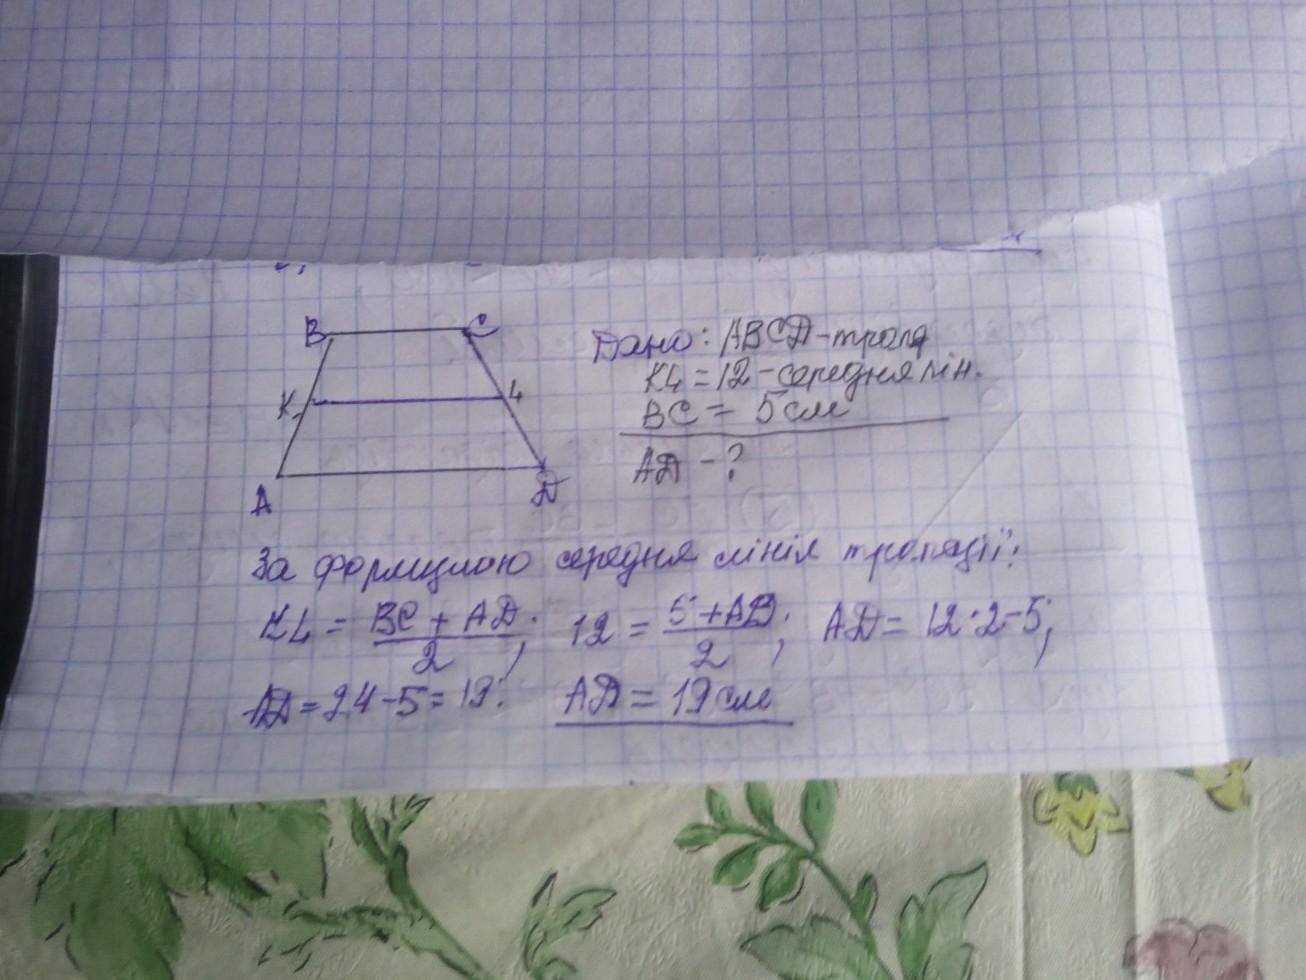 B C
Дано: ABCD-трапя
KL = 12 - середня лін.
K L
BC = 5 см
AD - ?
A D
За формулою середня лінія трапеції:
KL = BC + AD / 2 ; 12 = 5 + AD / 2 ; AD = 12·2-5;
AD = 24-5 = 19. AD = 19 см